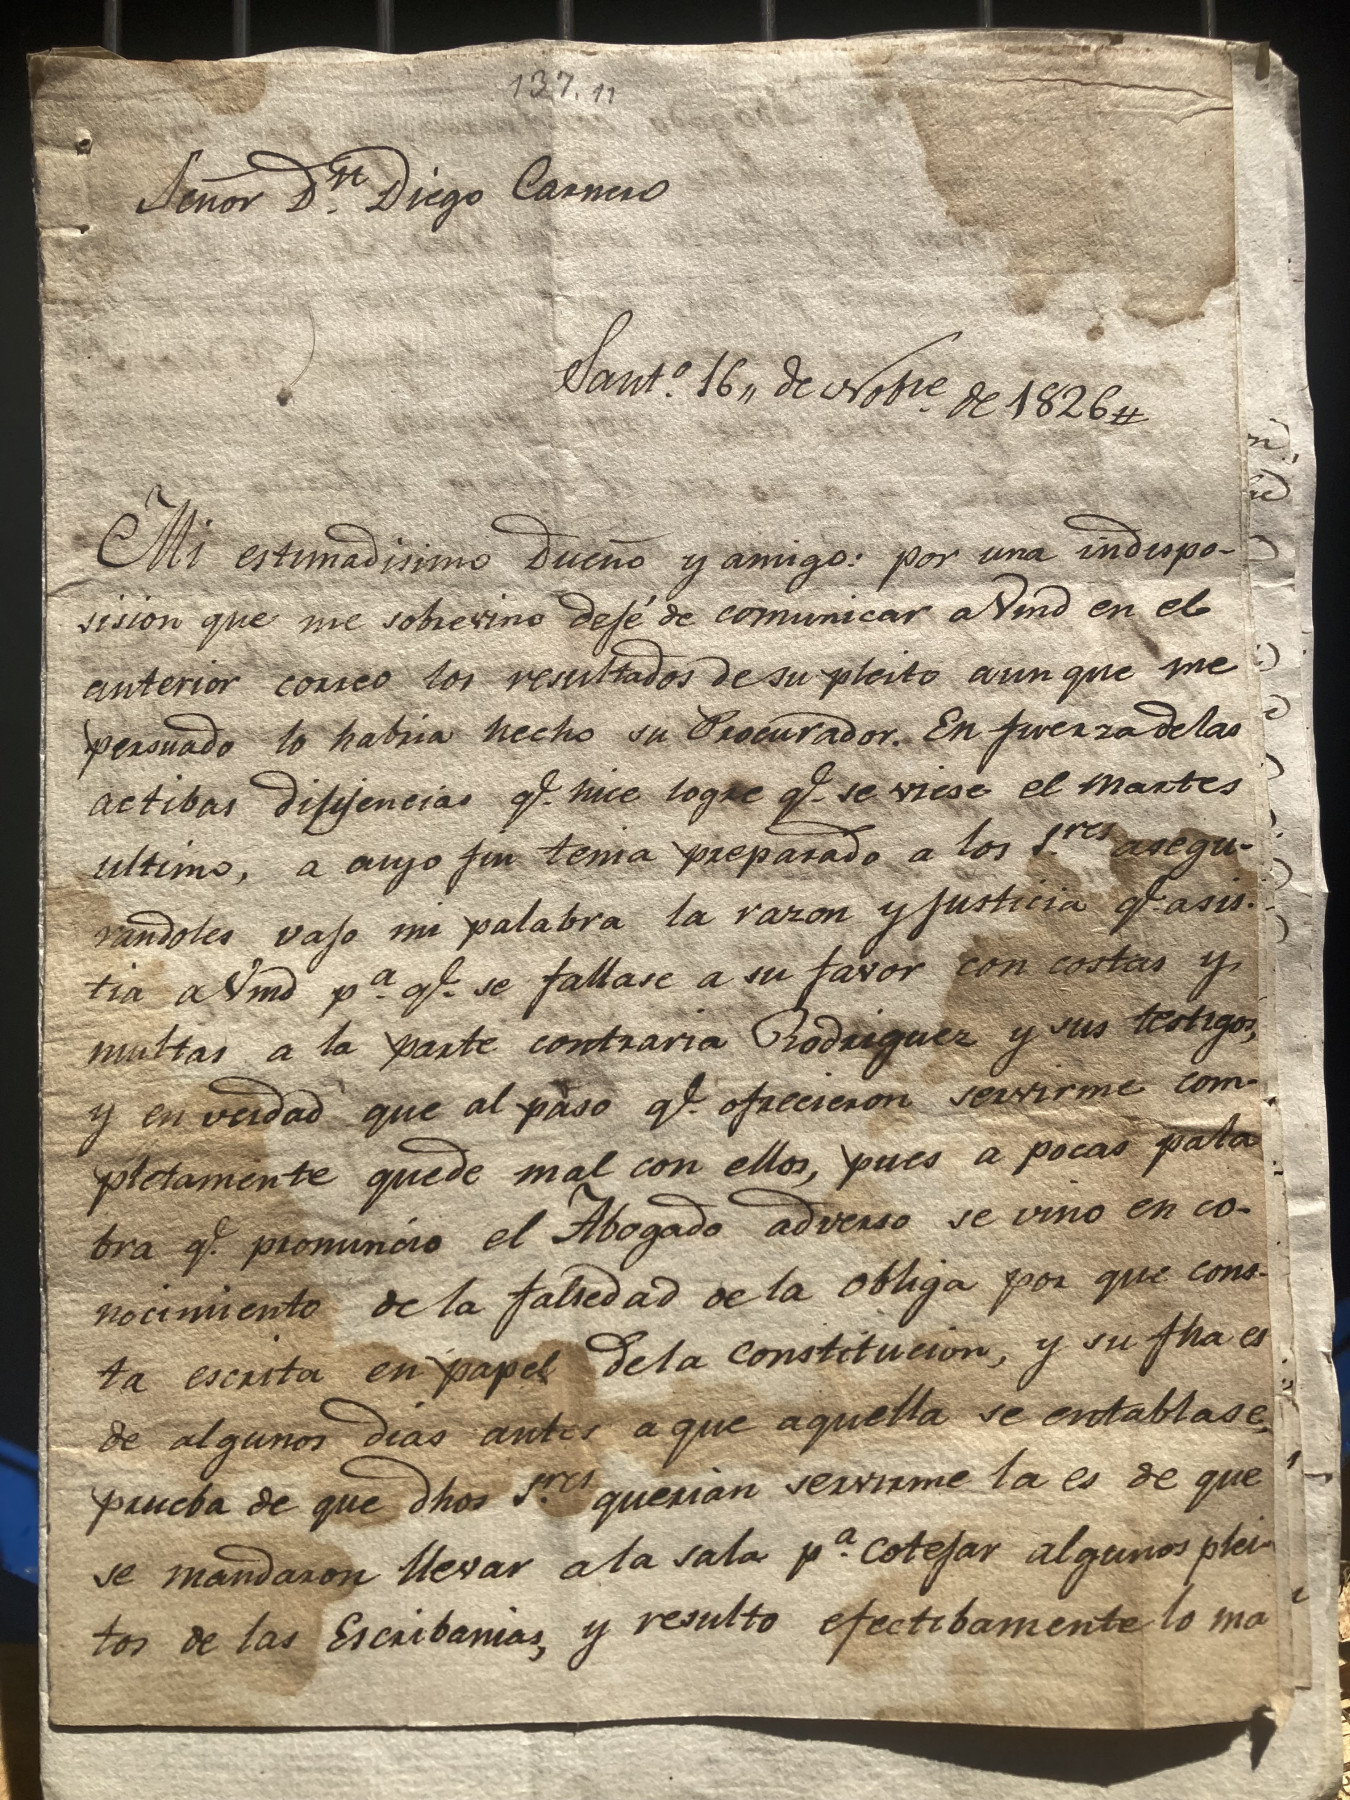 137. 11
Señor Dn. Diego Carnero
Santo. 16,, de Nobre. de 1826
Mi estimadisimo Dueño y amigo: por una indispo-
sision que me sobrevino dejé de comunicar a Vmd en el
anterior correo los resultados de su pleito aunque me
persuado lo habria hecho su Procurador. En fuerza de las
actibas dilijencias qe. hice logre qe. se viese el martes
ultimo, a cuyo fin tenia preparado a los Sres. asegu-
randoles vajo mi palabra la razon y justicia qe. asis-
tia a Vmd pa. qe. se fallase a su favor con costas y
multas a la parte contraria Rodriguez y sus testigos,
y en verdad que al paso qe. ofrecieron servirme com-
pletamente quede mal con ellos, pues a pocas pala
bra qe. pronuncio el Abogado adverso se vino en co-
nocimiento de la falsedad de la obliga por que cons-
ta escrita en papel de la constitucion, y su fha es
de algunos dias antes a que aquella se entablase,
prueba de que dhos Sres. querian servirme la es de que
se mandaron llevar a la sala pa. cotejar algunos plei-
tos de las Escribanias, y resulto efectibamente lo ma